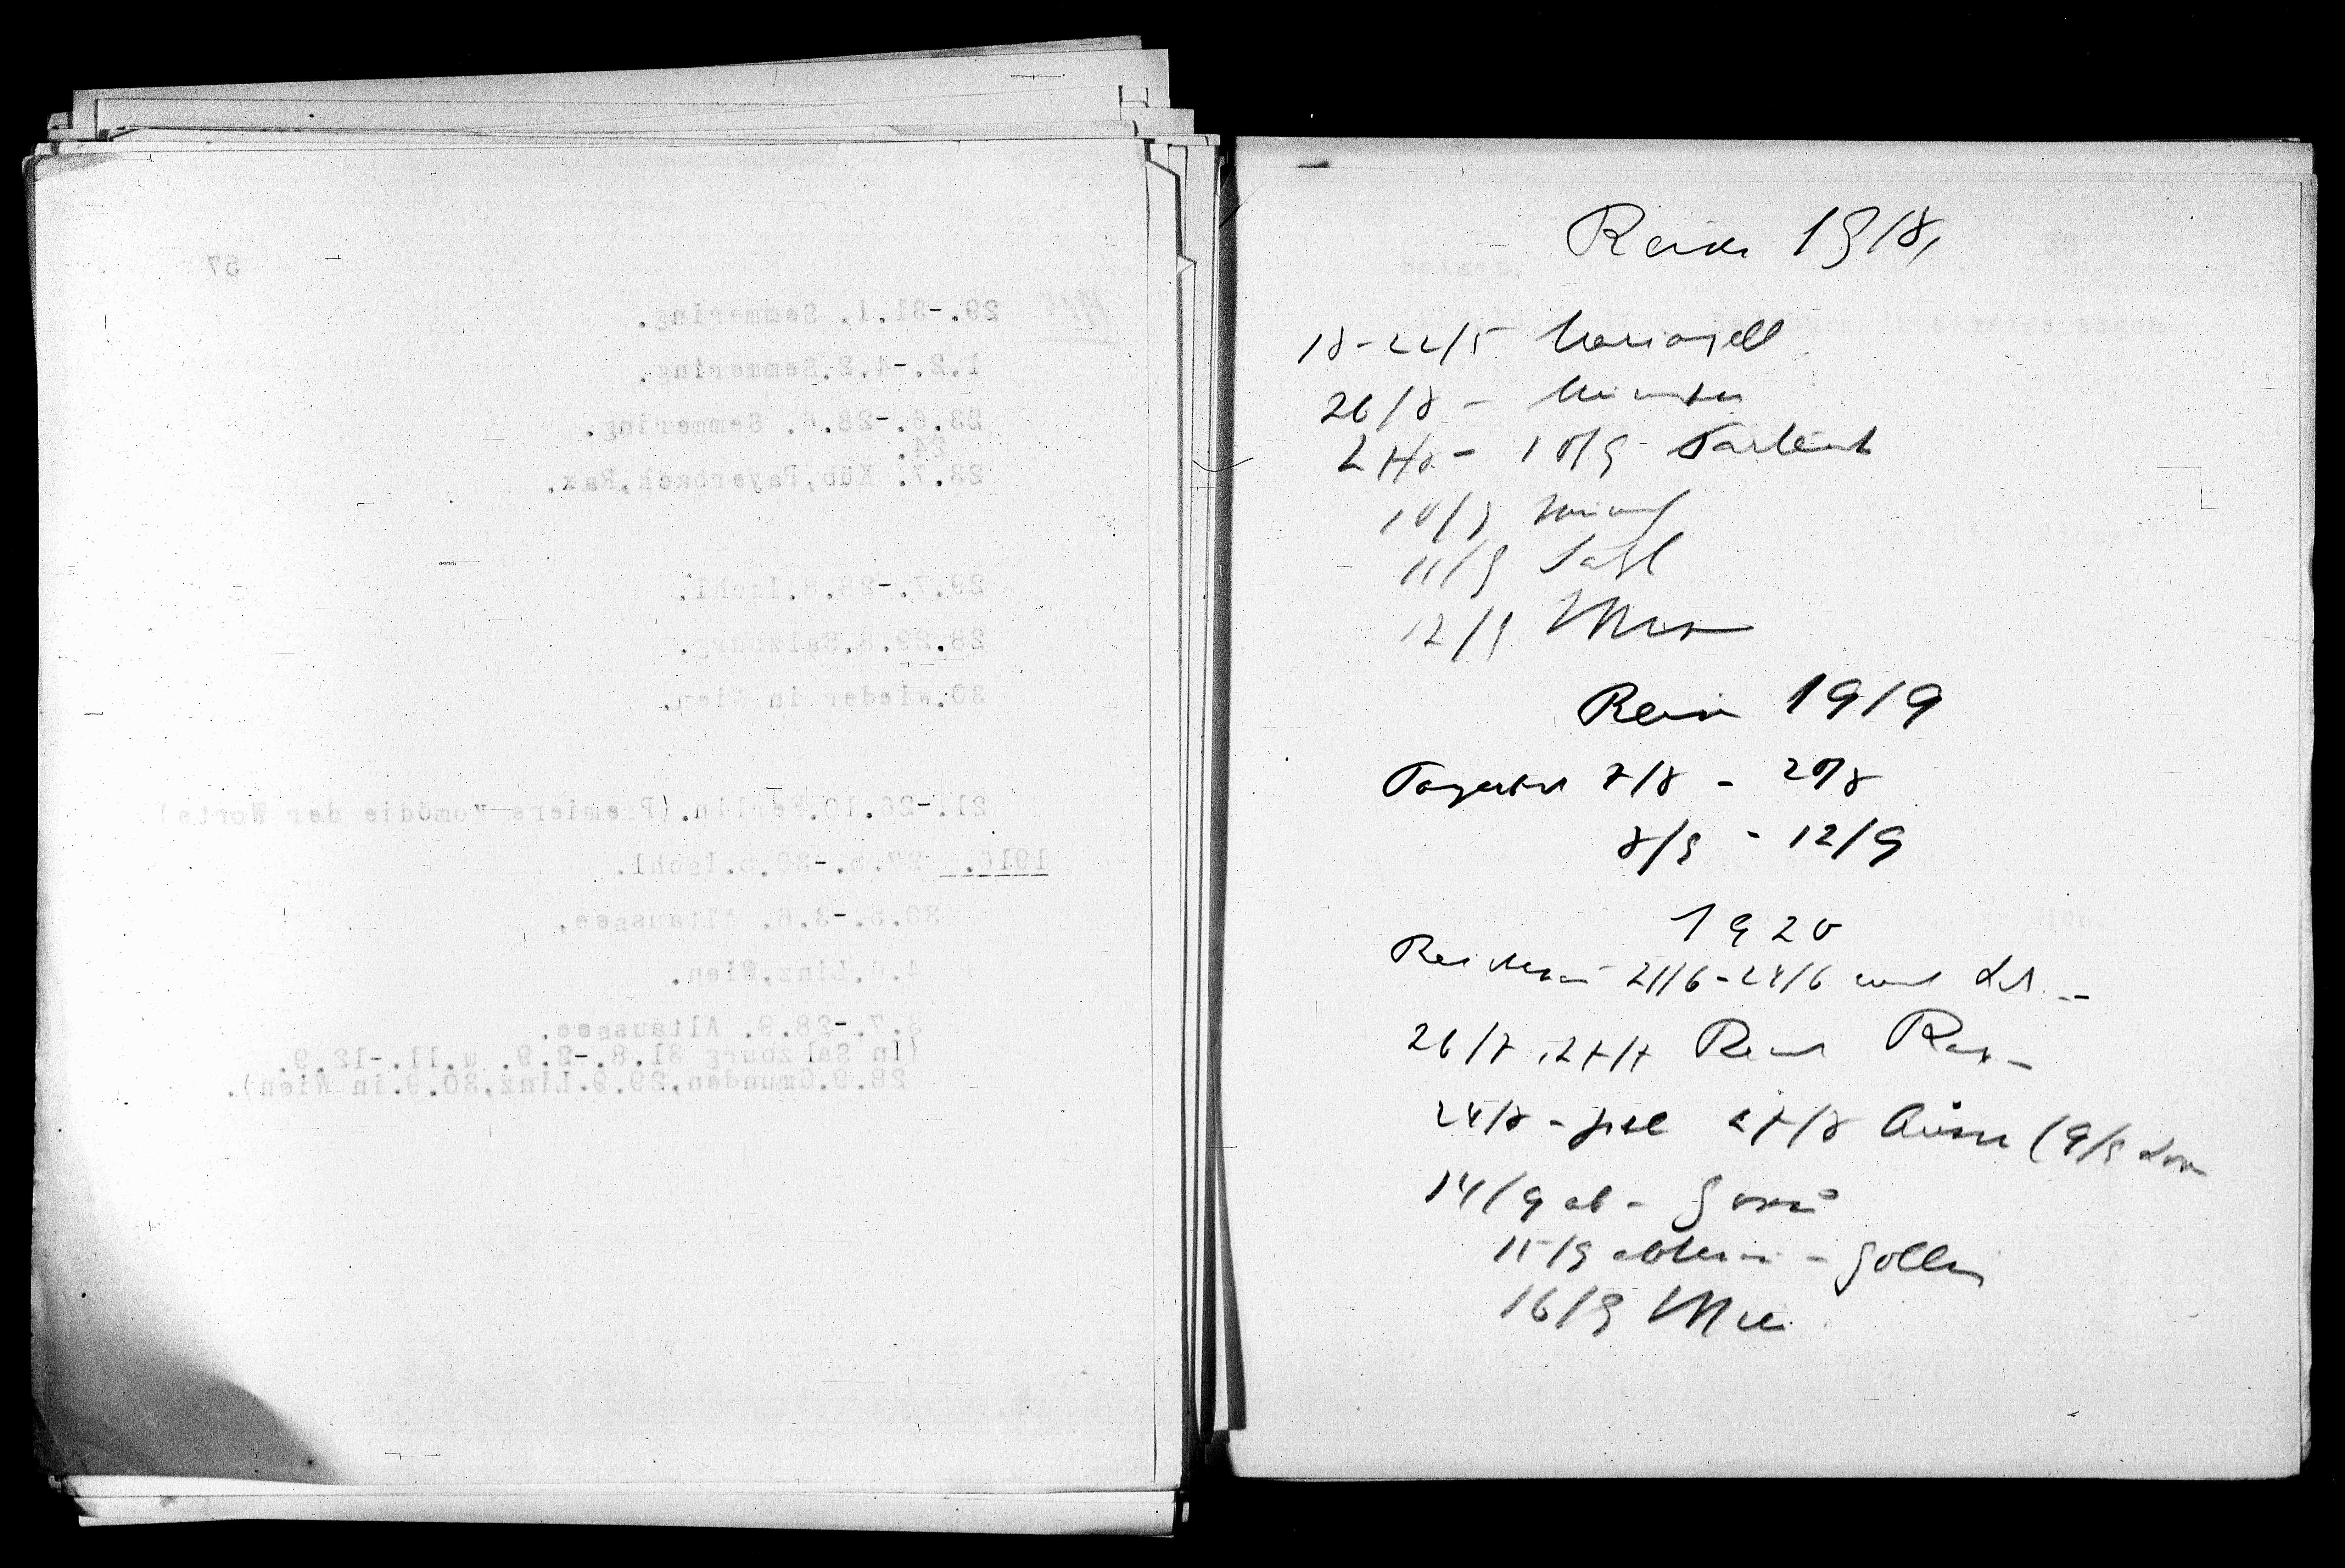 57
1915 29.-31.1. Semmering.
1.2.-4.2.Semmering.
23.6.-28.6. Semmering.
24.
23.7. Küb,Payerbach,Rax.
29.7.-28.8.Ischl.
28.29.8.Salzburg.
30.wieder in Wien.
21.-26.10.Berlin.(Premiere Komödie der Worte)
1916. 27.5.-30.5.Ischl.
30.5.-3.6. Altaussee.
4.6.Linz,Wien.
3.7.-28.9. Altaussee.
(In Salzburg 31.8.-2.9. u.11.-12.9.
28.9.Gmunden,29.9.Linz,30.9.in Wien).
Reisen 1918,
18-22/5 Mariazell
26/8 - München
27/8 - 10/9 Partenk
10/9
11/9 Salzb
12/9 Wien
Reisen 1919
7/8 - 20/8
8/9 - 12/9
1920
Reichenau 21/6-24/6 und
26/7, 27/7 Rax -
24/8 - Ischl 27/8 Aussee (9/9
14/9 ab - Gosau
15/9 - Golling
16/9 Wien